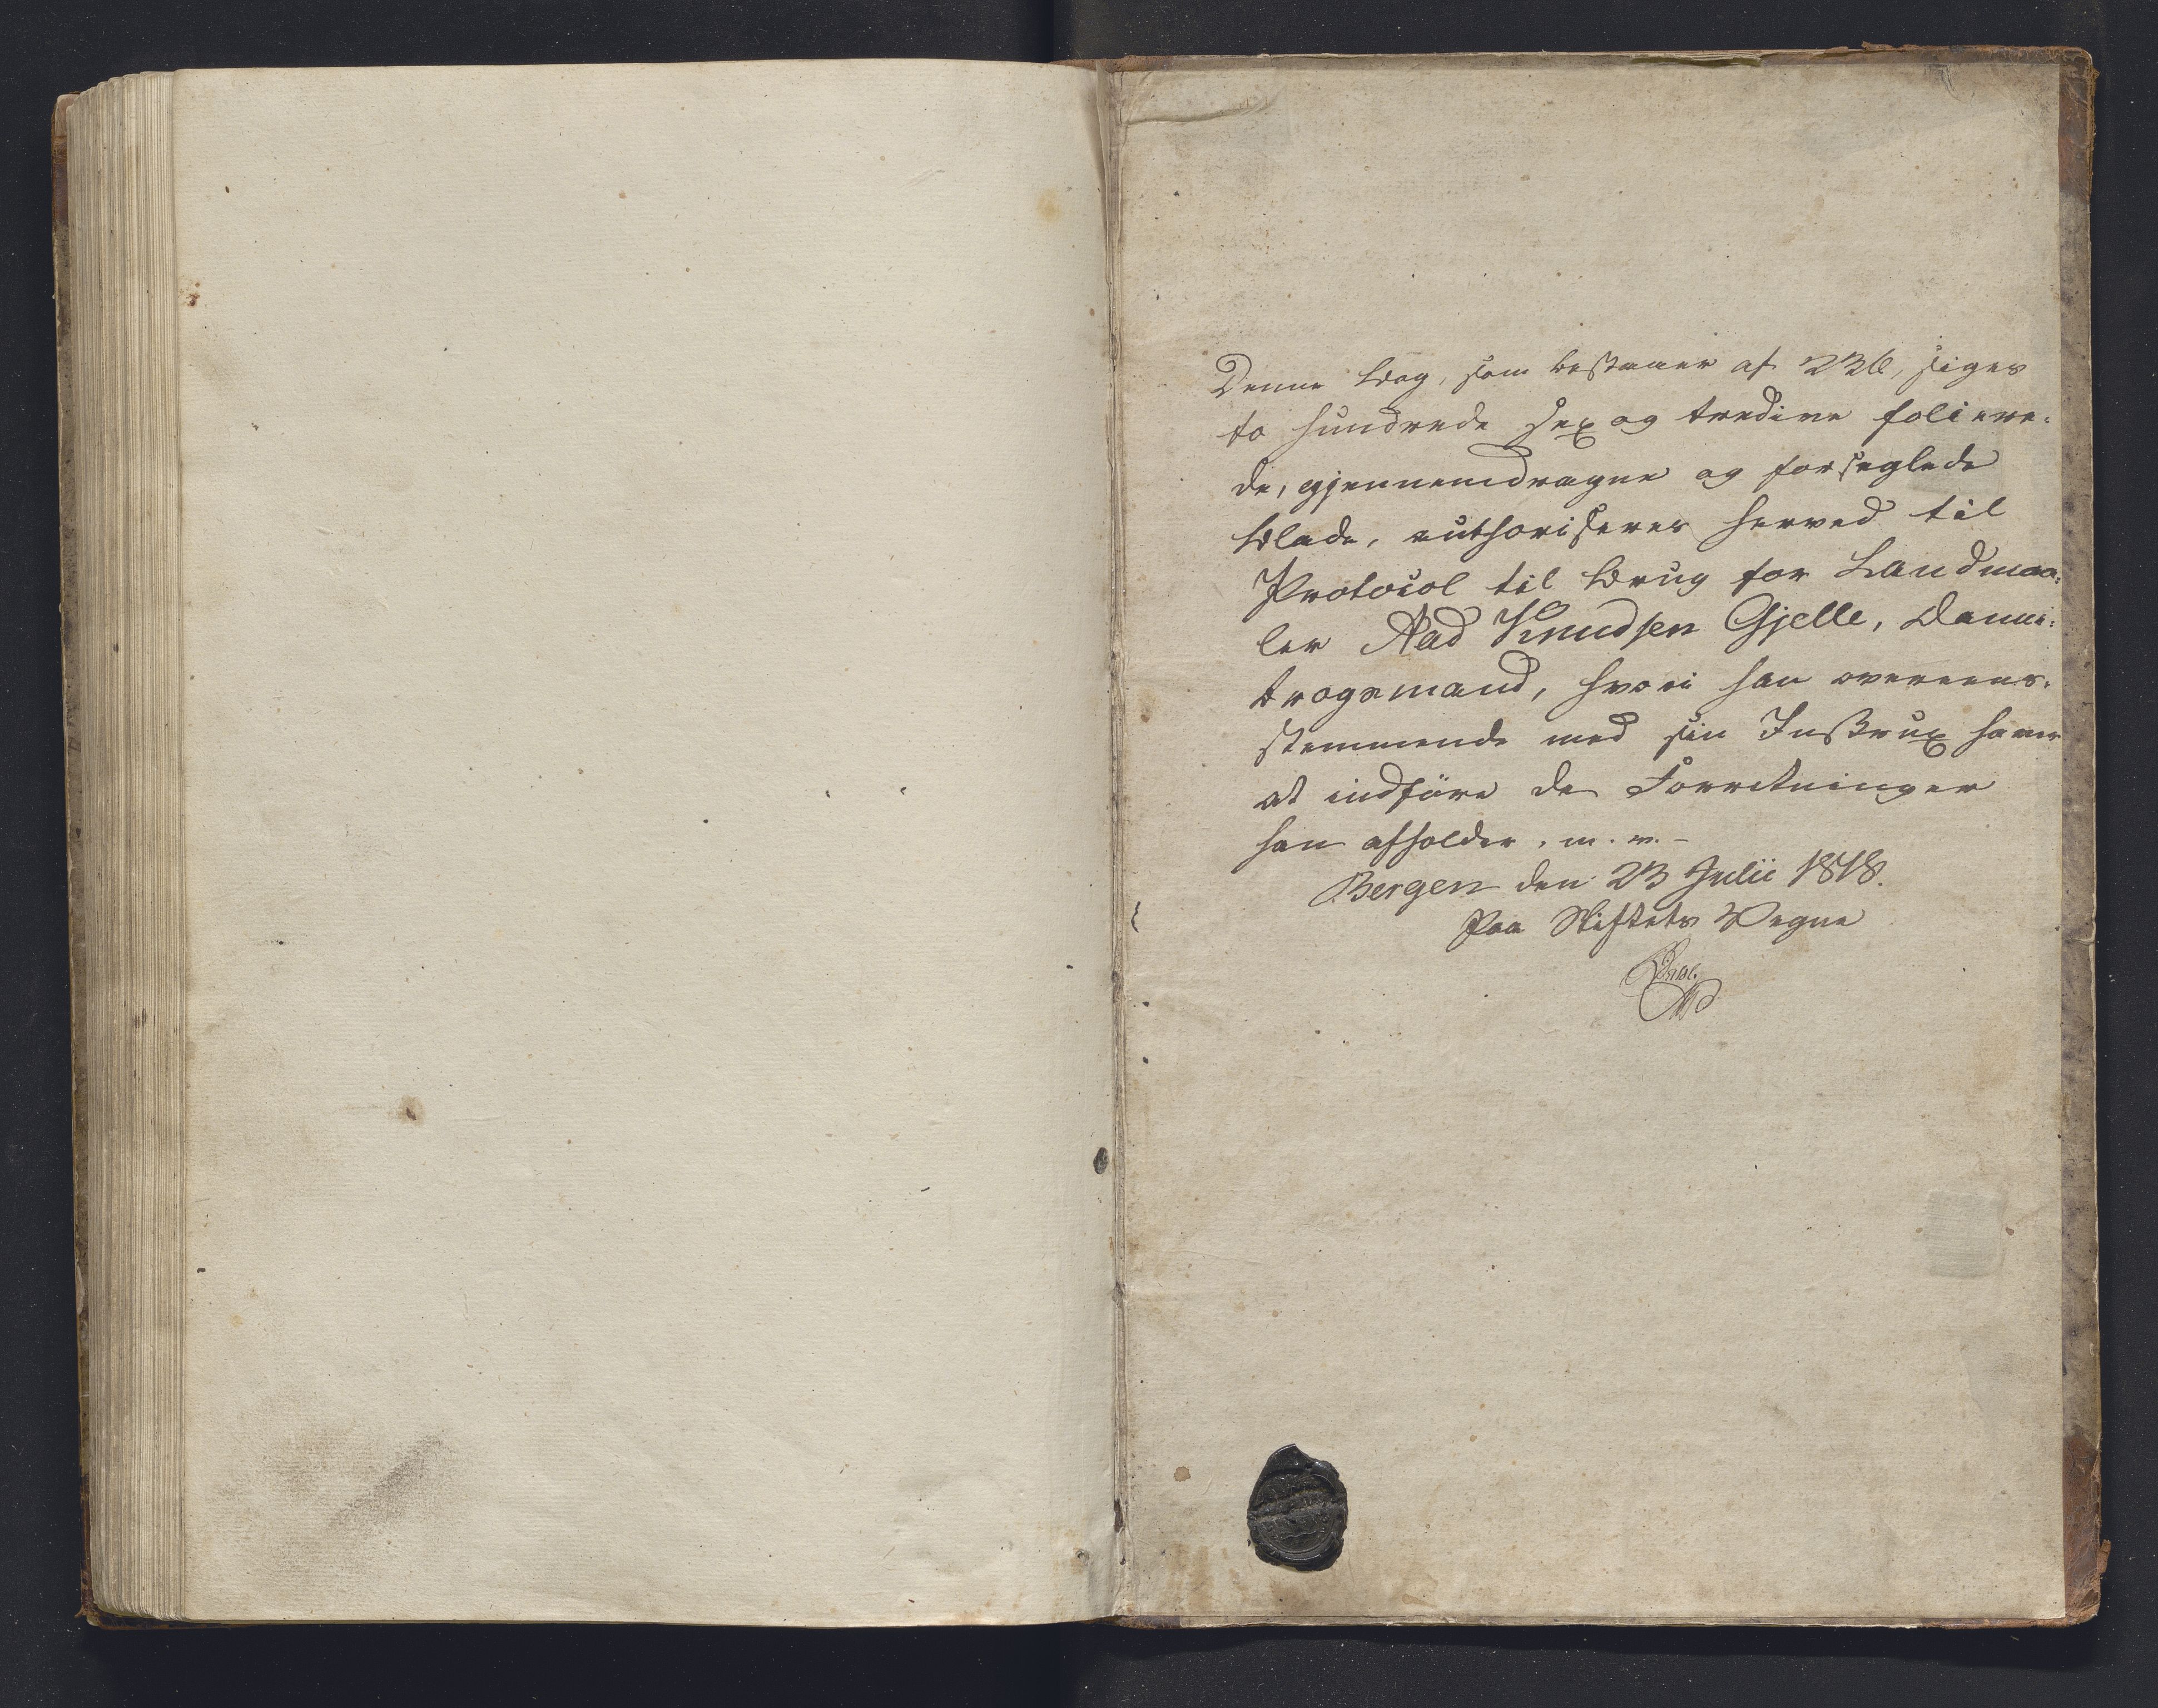 Denne Bog, som bestaaer af 236, siges
to hundrede sex og tredive foliere:
de, gjennemdragne og forseglede
Blade, authoriseres herved til
Protocol til Brug for Landmaa:
ler Aad Knudsen Gjelle, Danne:
brogsmand, hvori han overeens:
stemmende med sin Instrux haver
at indføre de Forretninger
han afholder, m. v. -
Bergen den 23 Julii 1818.
Paa Stiftets Vegne